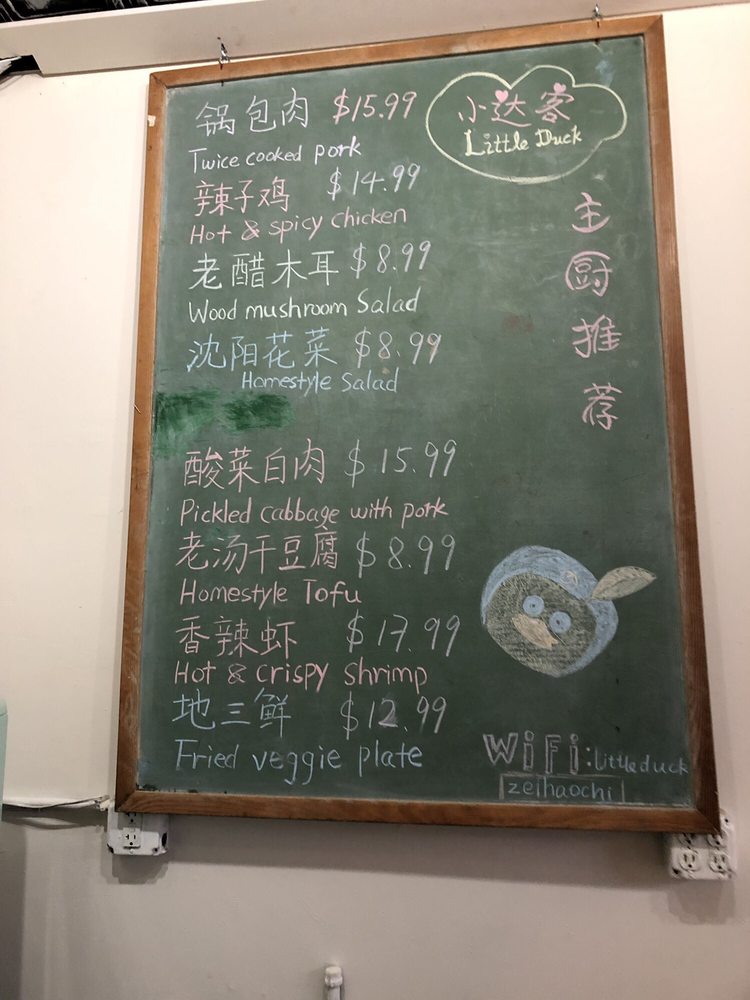 小达客
Little Duck
主厨推荐
锅包肉 $15.99
Twice cooked pork
辣子鸡 $14.99
Hot & spicy chicken
老醋木耳 $8.99
Wood mushroom Salad
沈阳花菜 $8.99
Homestyle Salad
酸菜白肉 $15.99
Pickled cabbage with pork
老汤干豆腐 $8.99
Homestyle Tofu
香辣虾 $17.99
Hot & crispy Shrimp
地三鲜 $12.99
Fried veggie plate
WiFi: Littleduck
zeihaochi